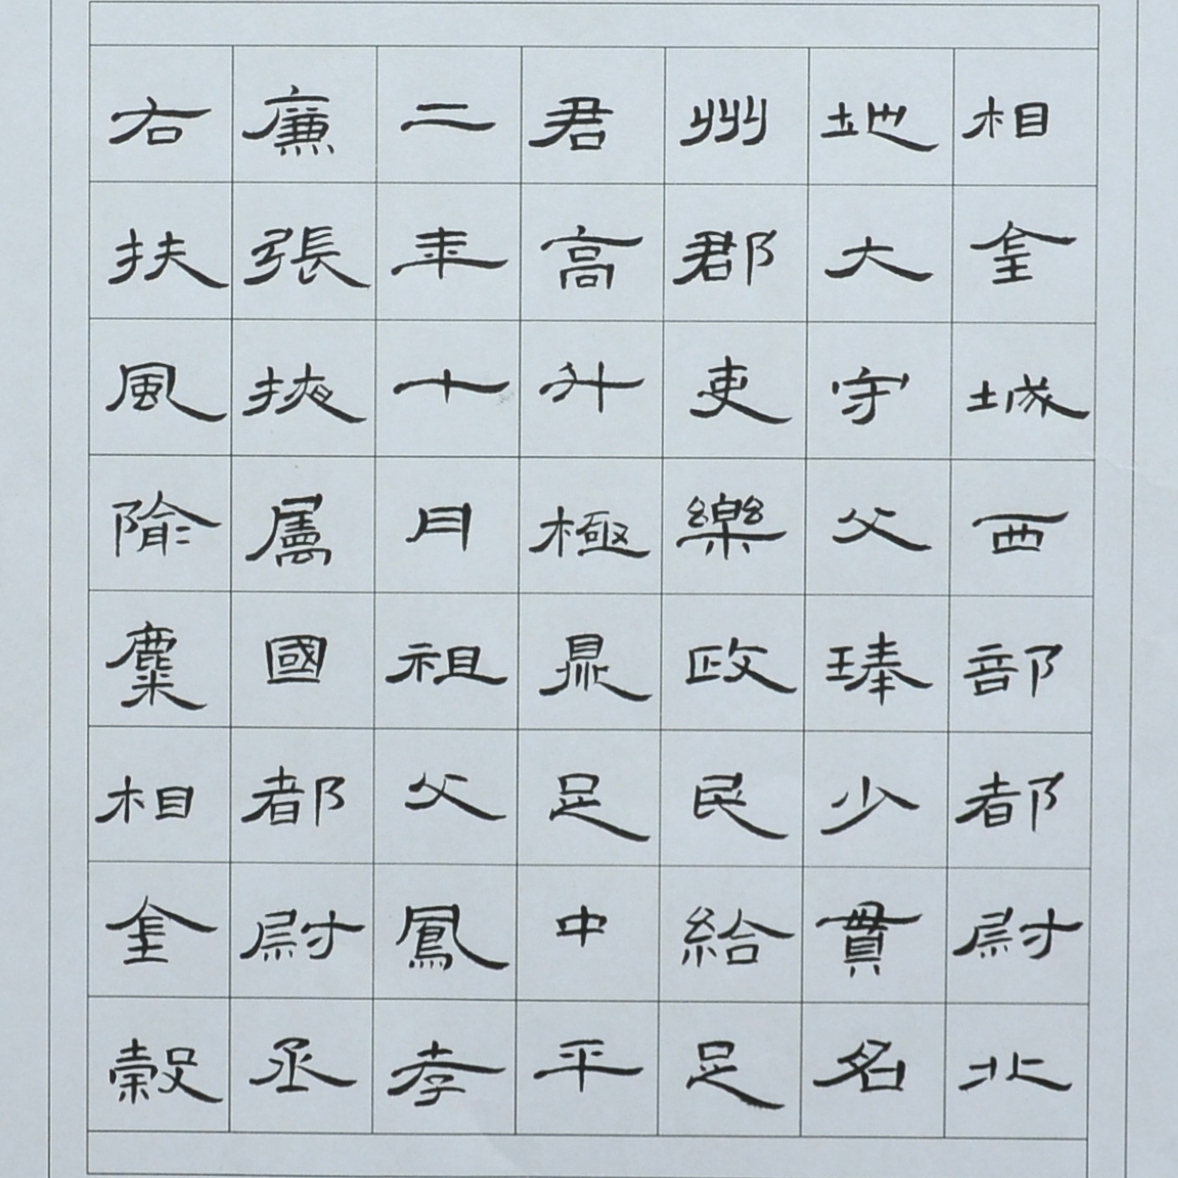 相金城西部都尉北
地大守父琫少貫名
州郡吏樂政民給足
君高升極鼎足中平
二年十月祖父鳳孝
廉張掖屬國都尉丞
右扶風隃麋相金穀